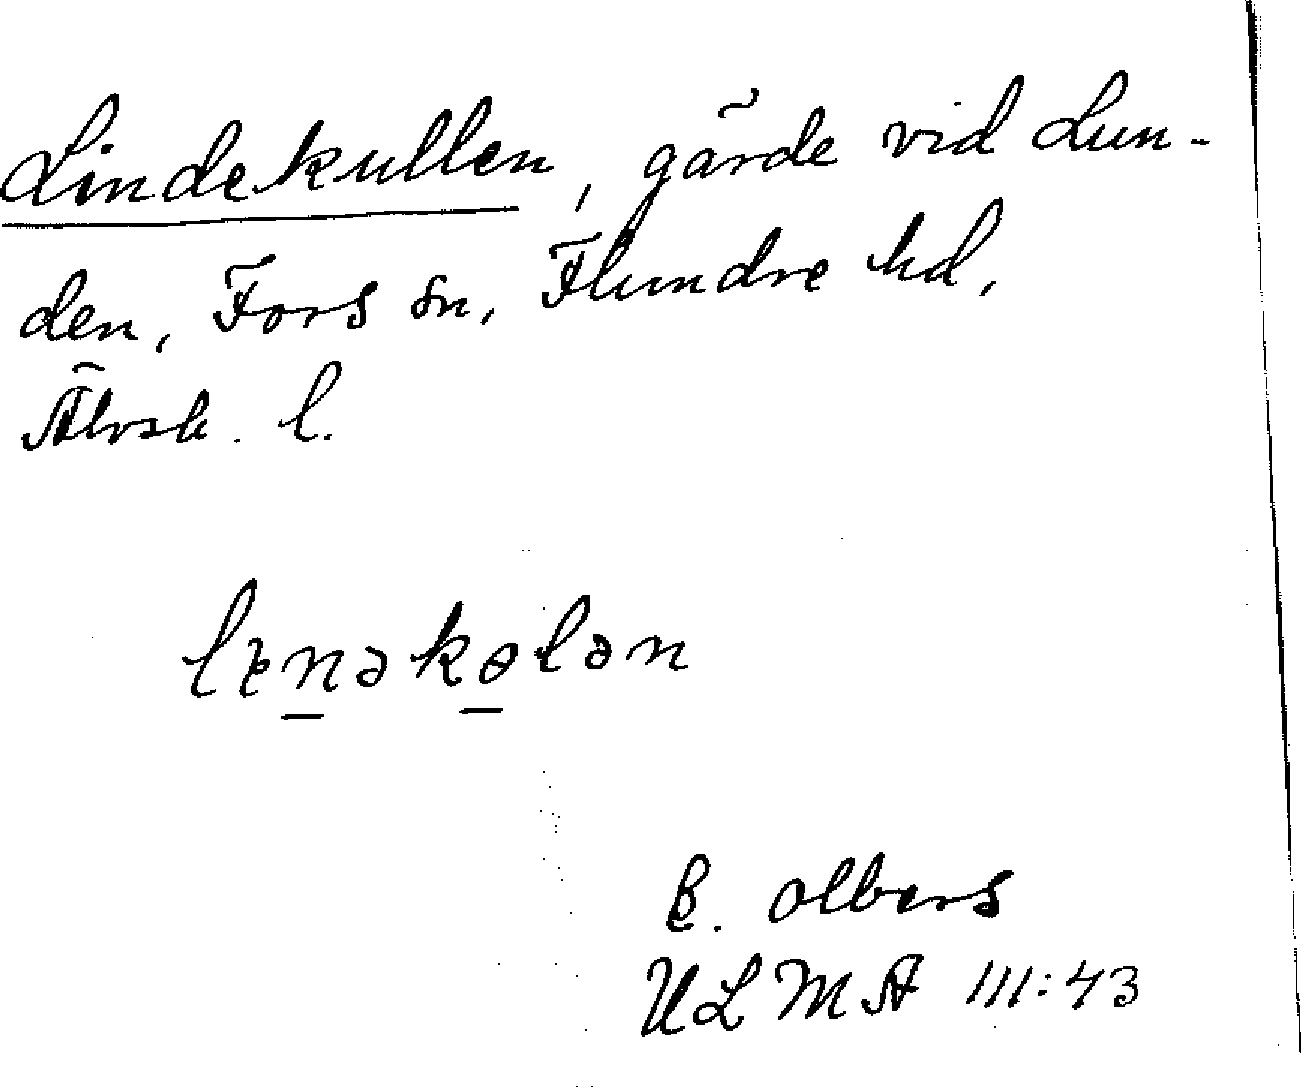 Lindekullen, gärde vid Lun-
den, Fors sn, Flundre hd,
Älvsb. l.
lɪnəkɵlən
E. Olbers
ULMA 111:43